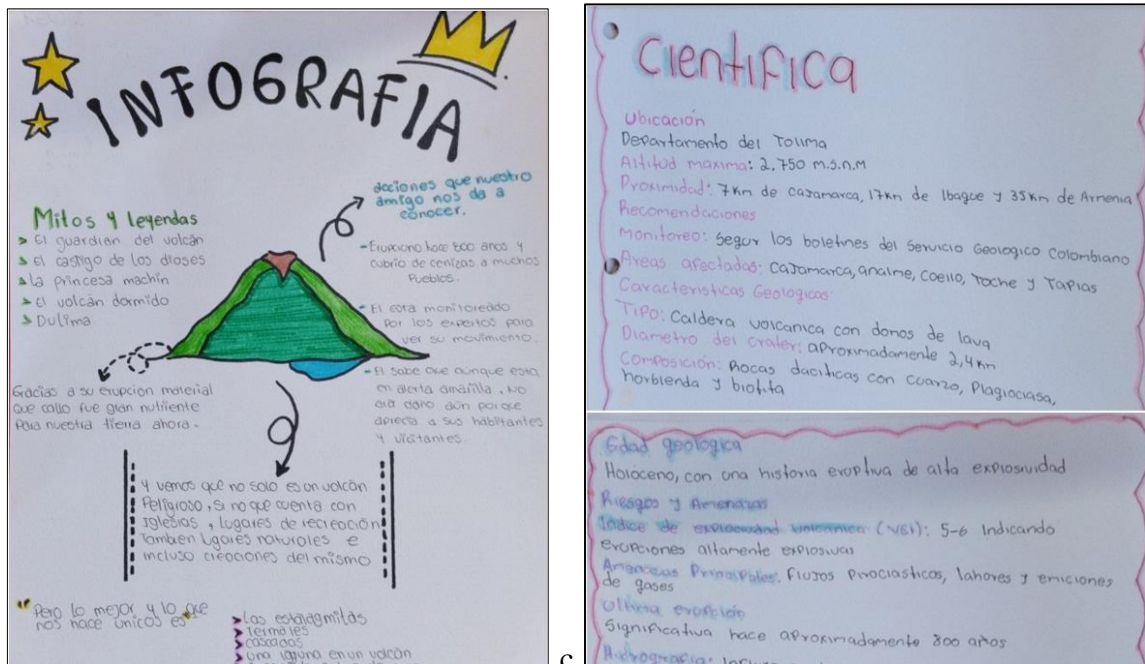 INFOGRAFIA
Mitos y leyendas
El guardian del volcán
el castigo de los dioses
la princesa machin
el volcán dormido
Dulima
Gracias a su erupcion material
que callo fue gran nutriente
para nuestra tierra ahora.
dociones que nuestro
amigo nos da a
conocer.
- Erupciono hace 800 anos y
cubrio de cenizas a muchos
Pueblos.
- El esta monitoreado
Por los expertos para
ver su movimiento.
- El sabe que aunque esta
en alerta amarilla, No
ara daño aún porque
aprecia a sus habitantes
y visitantes.
Y vemos que no solo es un volcán
Peligroso, si no que cuenta con
Iglesias, lugares de recreación
Tambien lugares naturales e
incluso creaciones del mismo
"Pero lo mejor y lo que
nos hace únicos es"
Las estalagmitas
Termales
cascadas
una laguna en un volcán
c
Cientifica
Ubicación
Departamento del Tolima
Altitud maxima: 2,750 m.s.n.m
Proximidad: 7km de cajamarca, 17km de Ibague y 35km de Armenia
Recomendaciones
Monitoreo: Seguir los boletines del Servicio Geologico Colombiano
Areas afectadas: Cajamarca, analme, Coello, Toche y Tapias
Caracteristicas Geologicas:
Tipo: Caldera volcanica con domos de lava
Diametro del crater: aproximadamente 2,4 km
Composición: Rocas daciticas con cuarzo, Plagioclasa,
horblenda y biotita
Edad geologica
Holoceno, con una historia eruptiva de alta explosividad
Riesgos y Amenazas
Indice de explosividad volcanica (VEI): 5-6 Indicando
erupciones altamente explosivas
Amenazas Principales: Flujos piroclasticos, lahares y emiciones
de gases
Ultima erupción
Significativa hace aproximadamente 800 años
Hidrografia: